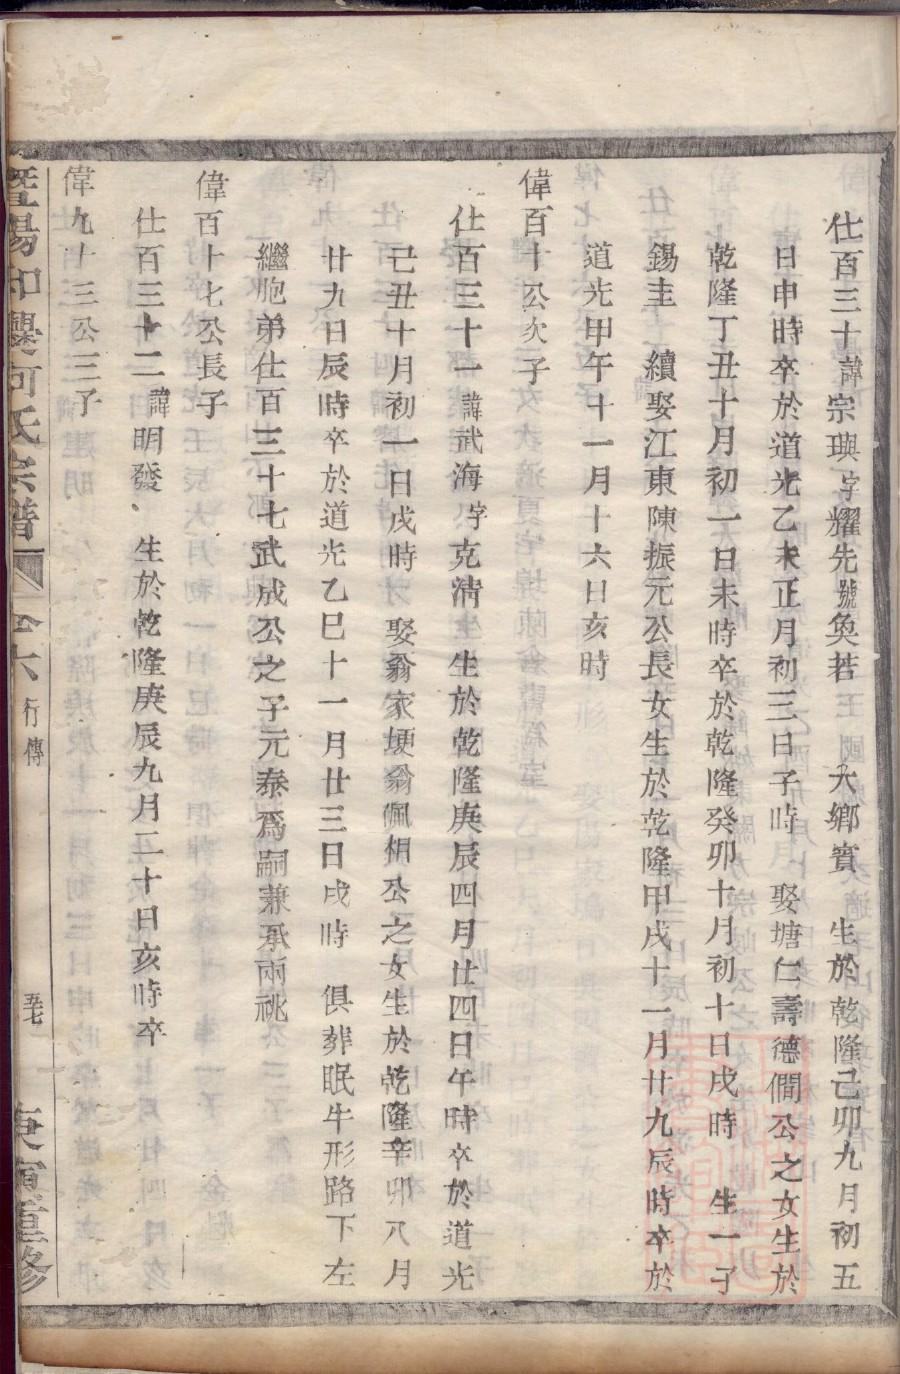 仕百三十諱宗璵字耀先號奐若　大鄉賓　生於乾隆己卯九月初五
日申時卒於道光乙未正月初三日子時　娶塘仁壽德僩公之女生於
乾隆丁丑十月初一日未時卒於乾隆癸卯十月初十日戌時　生一子
錫圭　續娶江東陳振元公長女生於乾隆甲戌十一月廿九辰時卒於
道光甲午十一月十六日亥時
偉百十公次子
仕百三十一諱武海字克清　生於乾隆庚辰四月廿四日午時卒於道光
己丑十月初一日戌時　娶翁家埂翁佩相公之女生於乾隆辛卯八月
廿九日辰時卒於道光乙巳十一月廿三日戌時　俱葬眠牛形路下左
繼胞弟仕百三十七武成公之子元泰爲嗣兼承兩祧
偉百十七公長子
仕百三十二諱明發　生於乾隆庚辰九月二十日亥時卒
偉九十三公三子
暨陽和何氏宗譜　卷六　行傳　五七　庚寅重修